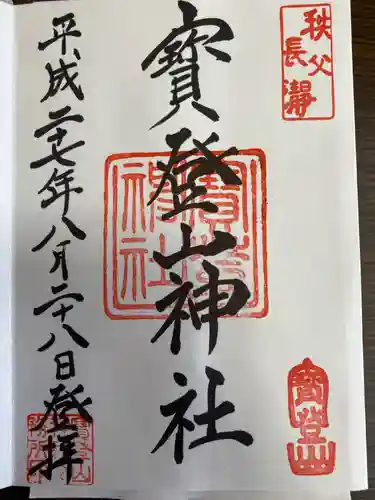 秩父
長瀞
寳登山神社
寳登山
平成二十七年八月二十八日登拝